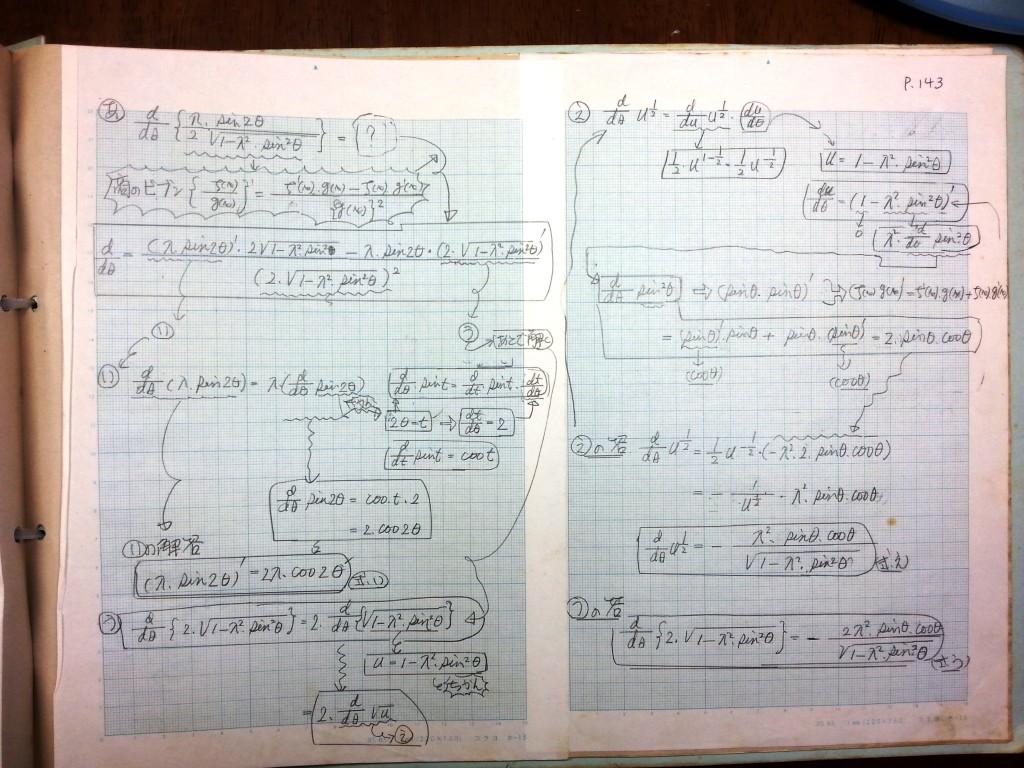 P.143
あ d/dθ { λ·sin2θ / 2√1-λ²·sin²θ } = ?
商のビブン { f(x)/g(x) }' = f'(x)·g(x) - f(x)·g'(x) / {g(x)}²
d/dθ = (λ·sin2θ)'·2√1-λ²·sin²θ - λ·sin2θ·(2·√1-λ²·sin²θ)' / (2·√1-λ²·sin²θ)²
d/dθ (λ·sin2θ) = λ·(d/dθ sin2θ)
d/dθ sint = d/dt sint·dt/dθ
2θ=t ⇒ dt/dθ = 2
d/dt sint = cost
d/dθ sin2θ = cos t·2
= 2·cos2θ
①の解答
(λ·sin2θ)' = 2λ·cos2θ
d/dθ {2·√1-λ²·sin²θ} = 2·d/dθ {√1-λ²·sin²θ}
u = 1-λ²·sin²θ
とちかん
= 2·d/dθ √u
→②
② d/dθ u^½ = d/du u^½·du/dθ
½·u^(1-½) = ½u^-½
u = 1-λ²·sin²θ
du/dθ = (1-λ²·sin²θ)'
0
λ²·d/dθ sin²θ
d/dθ sin²θ ⇒ (sinθ·sinθ)' → (f(x)·g(x))' = f'(x)·g(x)+f(x)·g'(x)
= (sinθ)'·sinθ + sinθ·(sinθ)' = 2·sinθ·cosθ
(cosθ) (cosθ)
②の答 d/dθ u^½ = ½u^-½·(-λ²·2·sinθ·cosθ)
= - 1/u^½ · λ²·sinθ·cosθ
d/dθ u^½ = - λ²·sinθ·cosθ / √1-λ²·sin²θ
の答
d/dθ {2·√1-λ²·sin²θ} = - 2λ²·sinθ·cosθ / √1-λ²·sin²θ